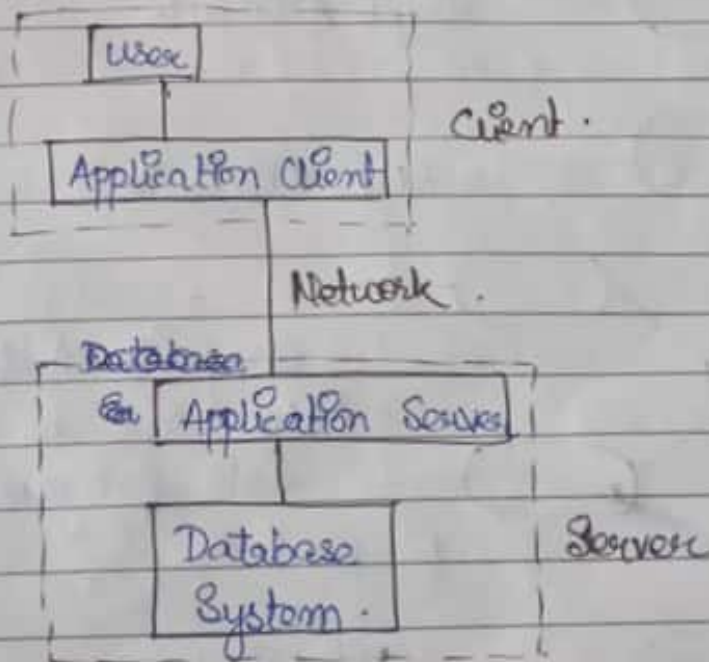 User
Client.
Application Client
Network.
Database
Application Server
Database
System.
Server